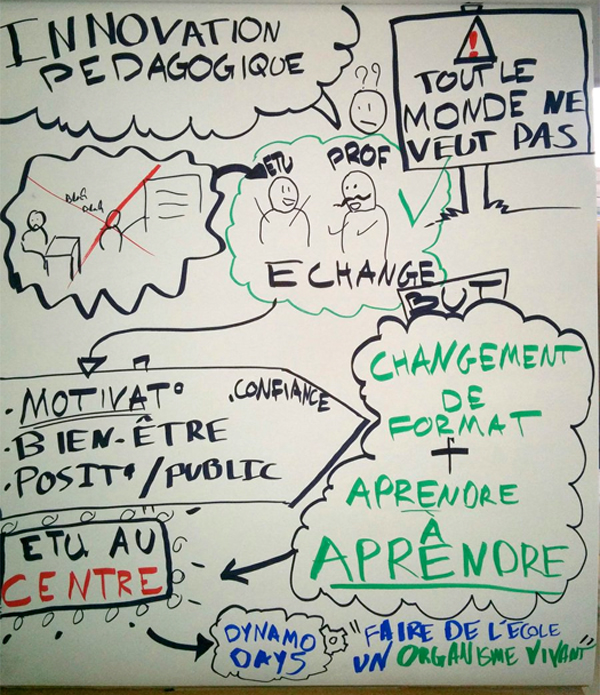 INNOVATION
PEDAGOGIQUE
??
!
TOUT LE
MONDE NE
VEUT PAS
BLA
BLA
ETU PROF
ECHANGE
BUT
CHANGEMENT
DE
FORMAT
+
APRENDRE
À
APRENDRE
. MOTIVAT° . CONFIANCE
. BIEN-ÊTRE
. POSIT° / PUBLIC
ETU AU
CENTRE
DYNAMO
DAYS
"FAIRE DE L'ECOLE
UN ORGANISME VIVANT"